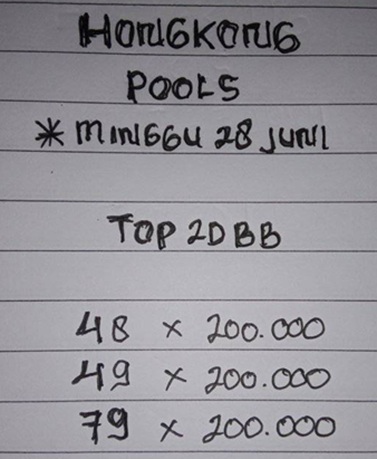 HONGKONG
POOLS
* MINGGU 28 JUNI
TOP 2D BB
48 x 200.000
49 x 200.000
79 x 200.000